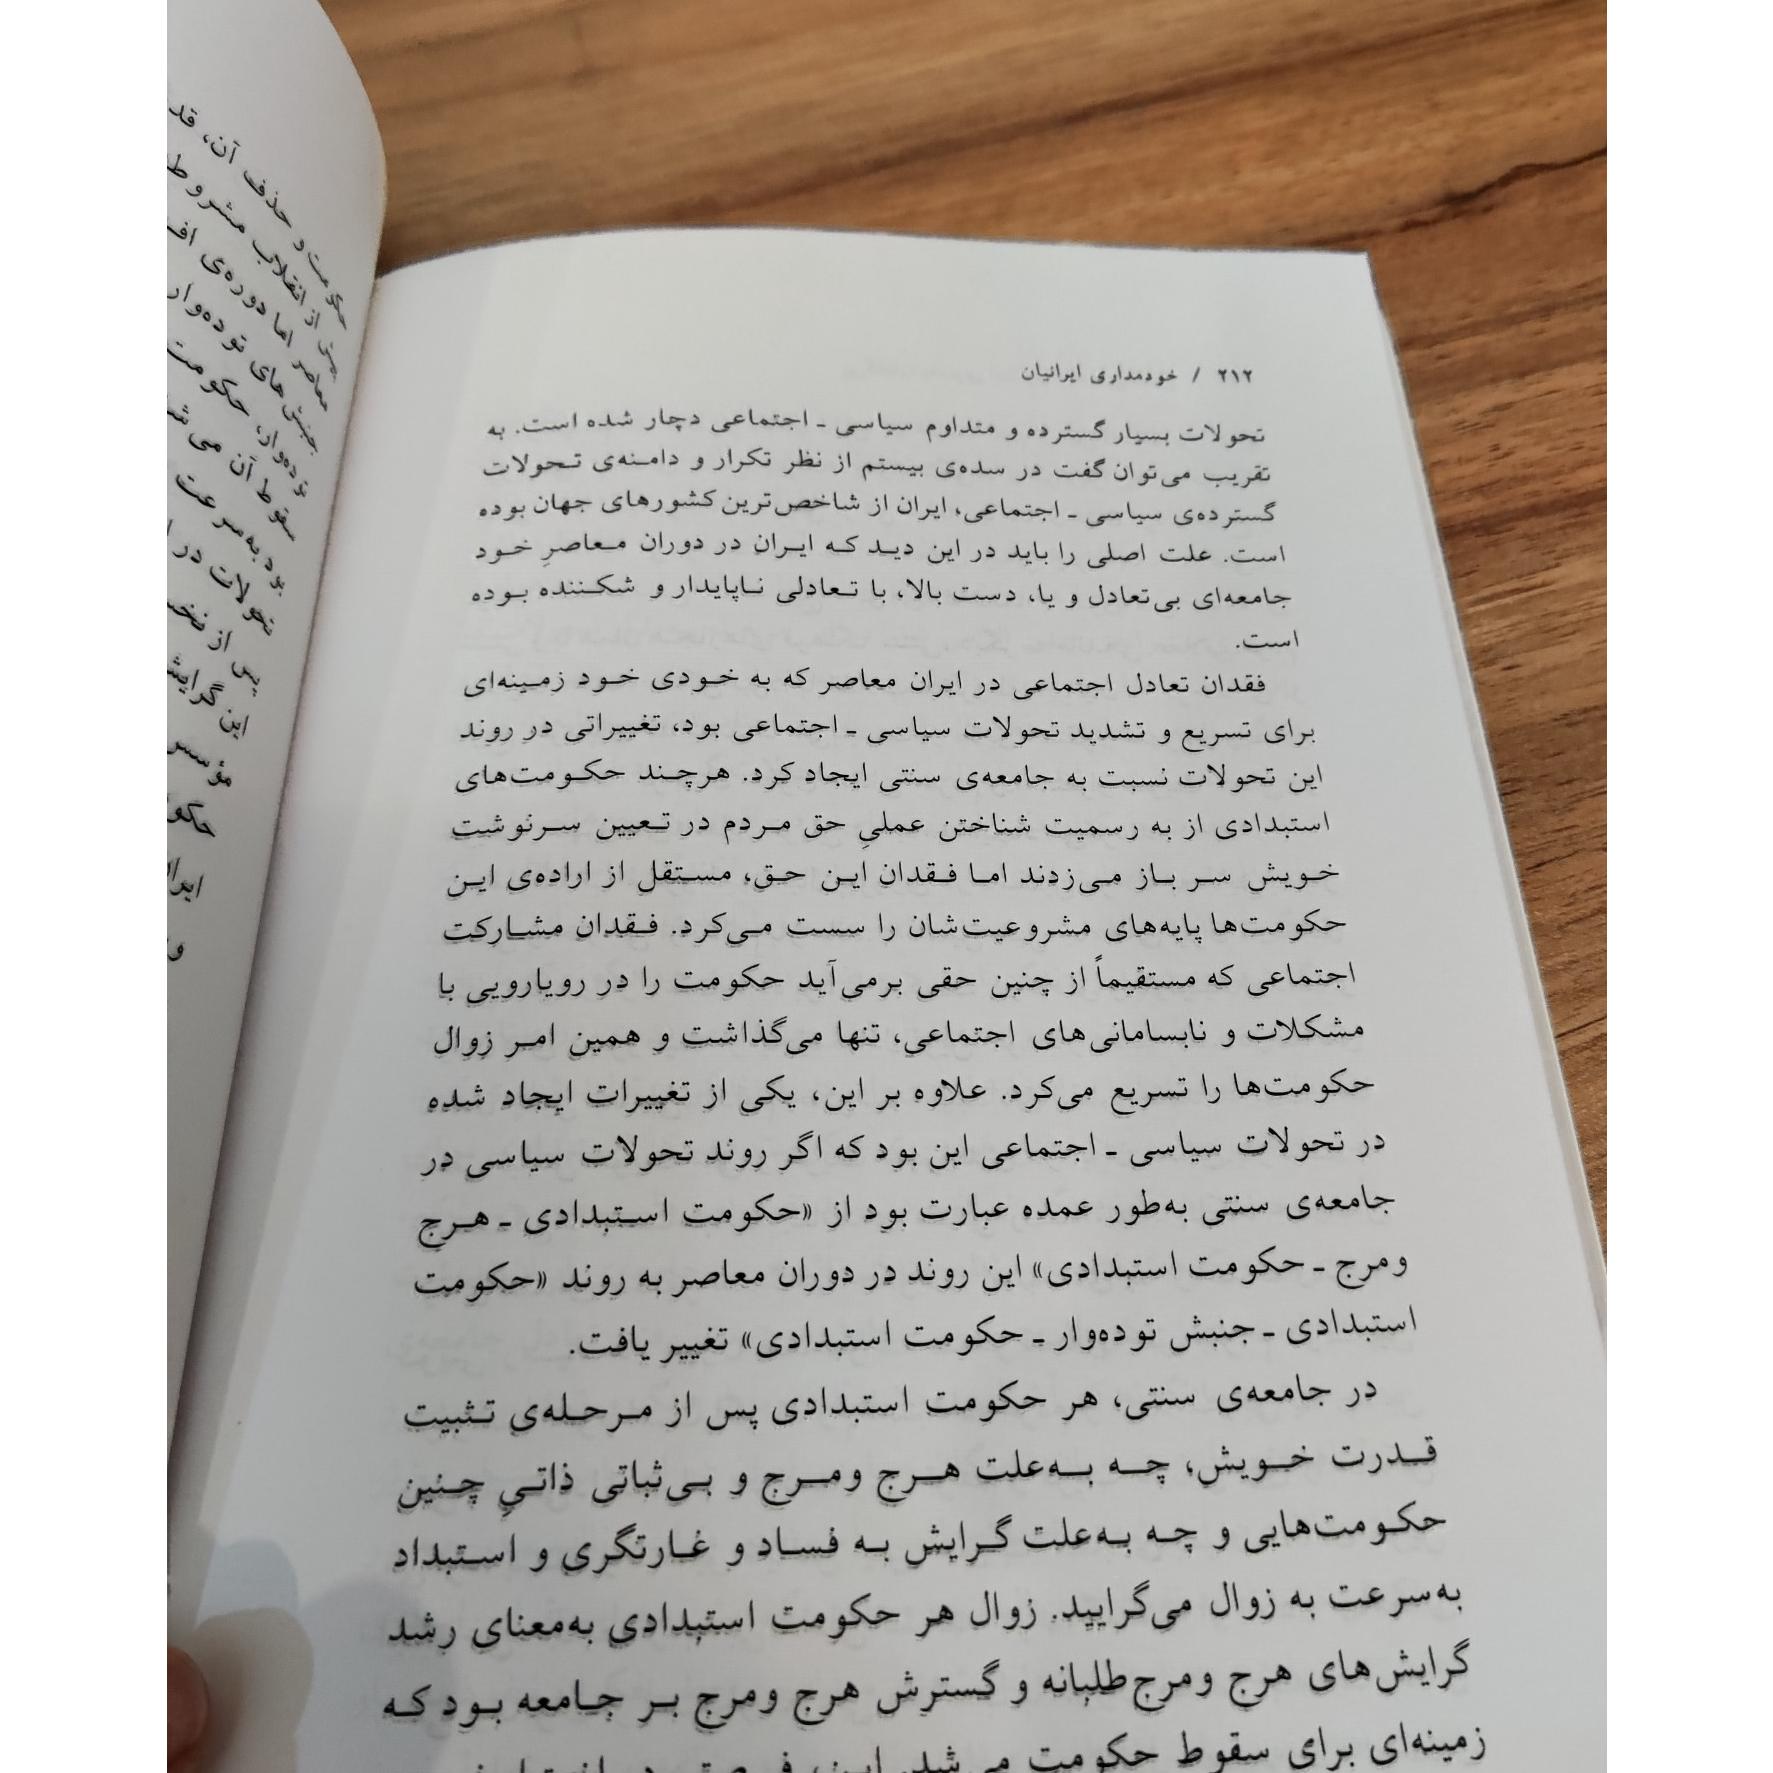 ۲۱۲ / خودمداری ایرانیان
تحولات بسیار گسترده و متداوم سیاسی ـ اجتماعی دچار شده است. به
تقریب می‌توان گفت در سده‌ی بیستم از نظر تکرار و دامنه‌ی تحولات
گسترده‌ی سیاسی ـ اجتماعی، ایران از شاخص‌ترین کشورهای جهان بوده
است. علت اصلی را باید در این دید که ایران در دوران معاصرِ خود
جامعه‌ای بی‌تعادل و یا، دست بالا، با تعادلی ناپایدار و شکننده بوده
است.
فقدان تعادل اجتماعی در ایران معاصر که به خودی خود زمینه‌ای
برای تسریع و تشدید تحولات سیاسی ـ اجتماعی بود، تغییراتی در روند
این تحولات نسبت به جامعه‌ی سنتی ایجاد کرد. هرچند حکومت‌های
استبدادی از به رسمیت شناختن عملیِ حق مردم در تعیین سرنوشت
خویش سر باز می‌زدند اما فقدان این حق، مستقل از اراده‌ی این
حکومت‌ها پایه‌های مشروعیت‌شان را سست می‌کرد. فقدان مشارکت
اجتماعی که مستقیماً از چنین حقی برمی‌آید حکومت را در رویارویی با
مشکلات و نابسامانی‌های اجتماعی، تنها می‌گذاشت و همین امر زوال
حکومت‌ها را تسریع می‌کرد. علاوه بر این، یکی از تغییرات ایجاد شده
در تحولات سیاسی ـ اجتماعی این بود که اگر روند تحولات سیاسی در
جامعه‌ی سنتی به‌طور عمده عبارت بود از «حکومت استبدادی ـ هرج
ومرج ـ حکومت استبدادی» این روند در دوران معاصر به روند «حکومت
استبدادی ـ جنبش توده‌وار ـ حکومت استبدادی» تغییر یافت.
در جامعه‌ی سنتی، هر حکومت استبدادی پس از مرحله‌ی تثبیت
قدرت خویش، چه به‌علت هرج ومرج و بی‌ثباتی ذاتیِ چنین
حکومت‌هایی و چه به‌علت گرایش به فساد و غارتگری و استبداد
به‌سرعت به زوال می‌گرایید. زوال هر حکومت استبدادی به‌معنای رشد
گرایش‌های هرج ومرج‌طلبانه و گسترش هرج ومرج بر جامعه بود که
زمینه‌ای برای سقوط حکومت می‌شد.
حکومت و حذف آن،
از انقلاب
اما دوره‌ی
جنبش‌های توده‌وار
توده‌وار، حکومت
سقوط آن
بود به‌سرعت
تحولات در
پس از
این